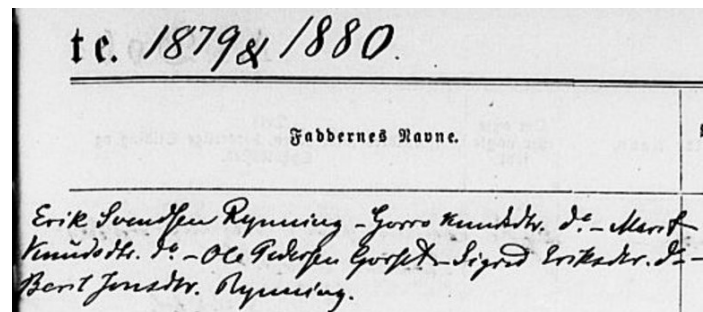 te. 1879 & 1880.
Faddernes Navne.
Erik Svendsen Rynning - Gorro Knudsdtr. do - Marit
Knudsdtr. do - Ole Pedersen Gorset - Sigrid Eriksdtr. do -
Berit Jonsdtr. Rynning.